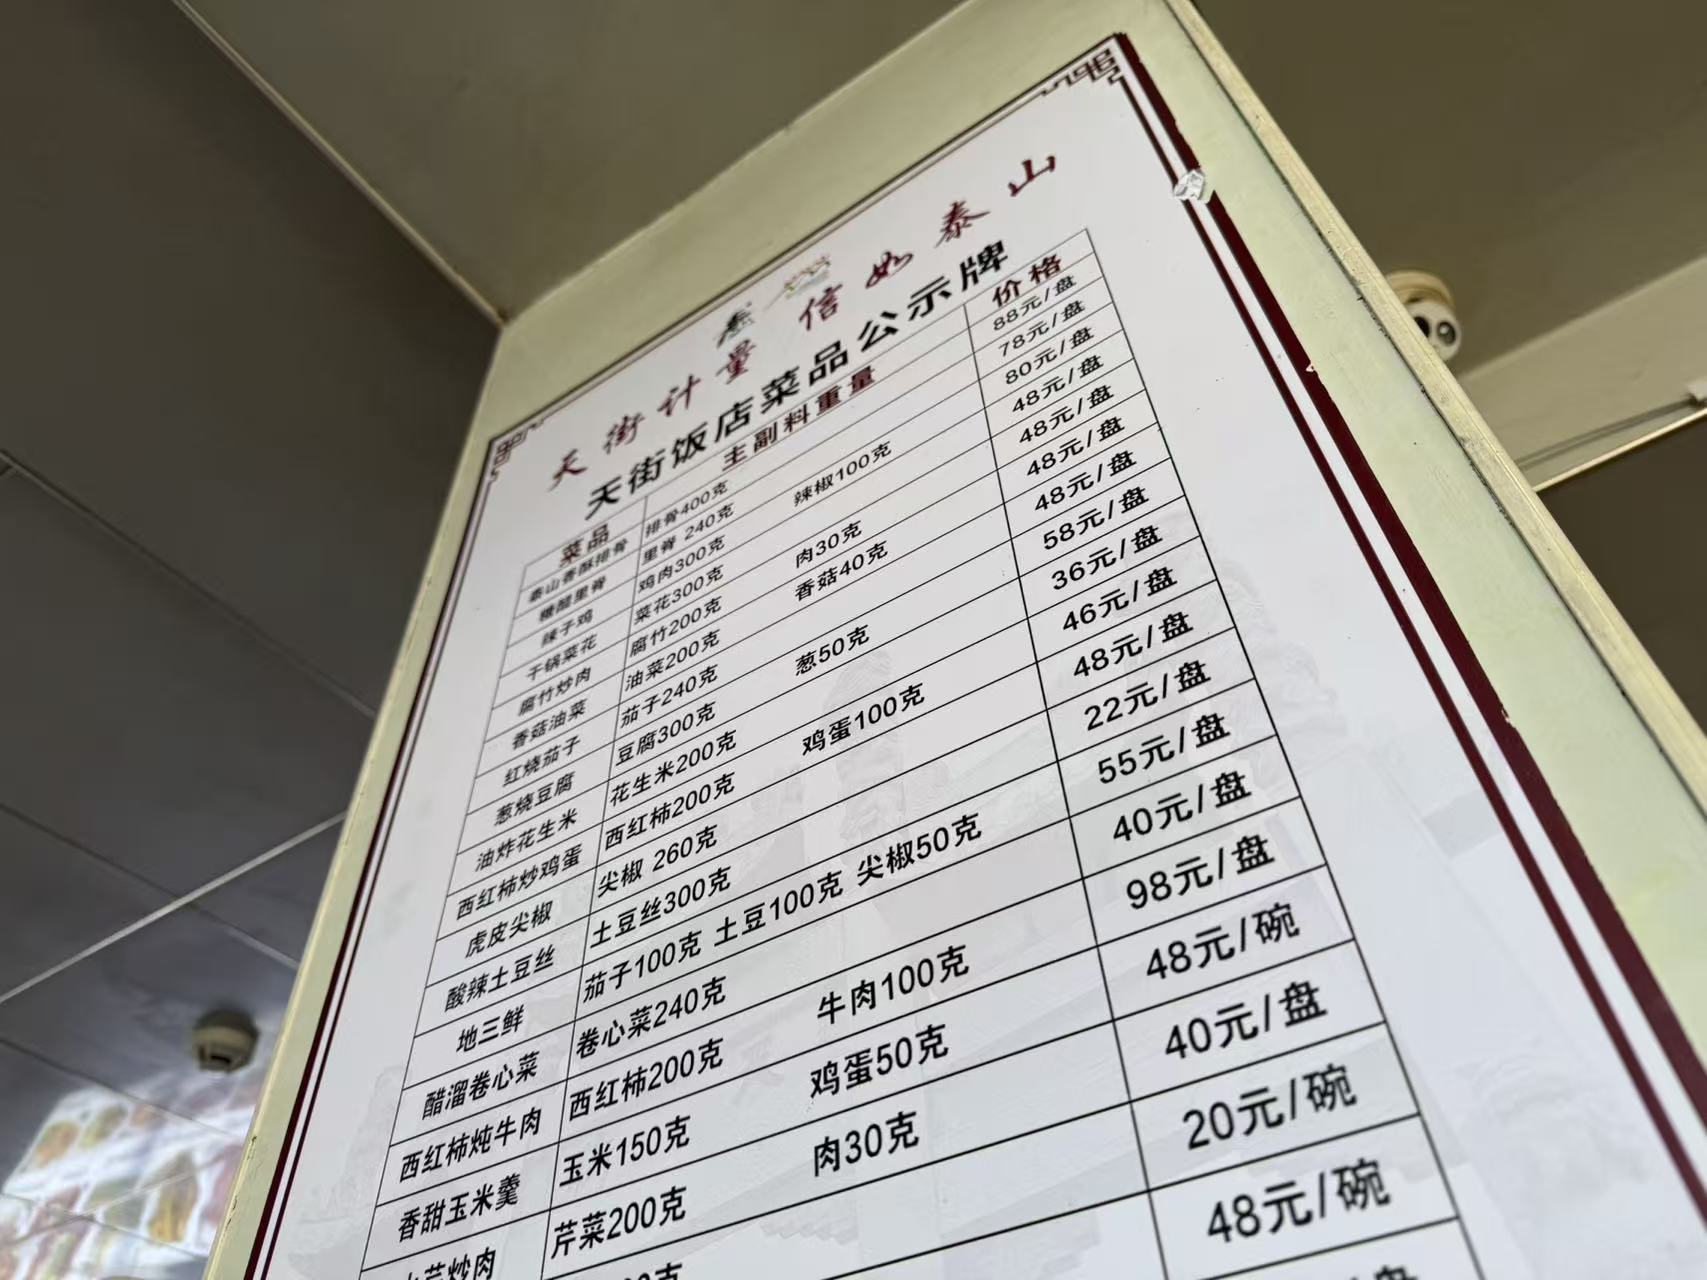 天街计量 信如泰山
天街饭店菜品公示牌
菜品 主副料重量 价格
泰山香酥排骨 排骨400克 88元/盘
糖醋里脊 里脊 240克 78元/盘
辣子鸡 鸡肉300克 辣椒100克 80元/盘
干锅菜花 菜花300克 48元/盘
腐竹炒肉 腐竹200克 肉30克 48元/盘
香菇油菜 油菜200克 香菇40克 48元/盘
红烧茄子 茄子240克 48元/盘
葱烧豆腐 豆腐300克 葱50克 58元/盘
油炸花生米 花生米200克 36元/盘
西红柿炒鸡蛋 西红柿200克 鸡蛋100克 46元/盘
虎皮尖椒 尖椒 260克 48元/盘
酸辣土豆丝 土豆丝300克 22元/盘
地三鲜 茄子100克 土豆100克 尖椒50克 55元/盘
醋溜卷心菜 卷心菜240克 40元/盘
西红柿炖牛肉 西红柿200克 牛肉100克 98元/盘
香甜玉米羹 玉米150克 鸡蛋50克 48元/碗
炒肉 芹菜200克 肉30克 40元/盘
20元/碗
48元/碗